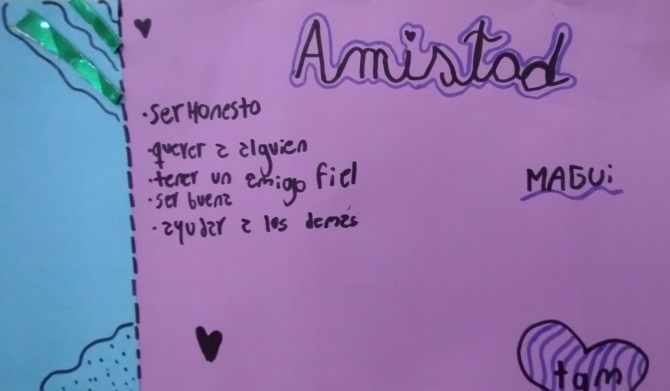 Amistad
·ser Honesto
·querer a alguien
·tener un amigo fiel
MAGUi
·ser buena
·ayudar a los demás
tqm